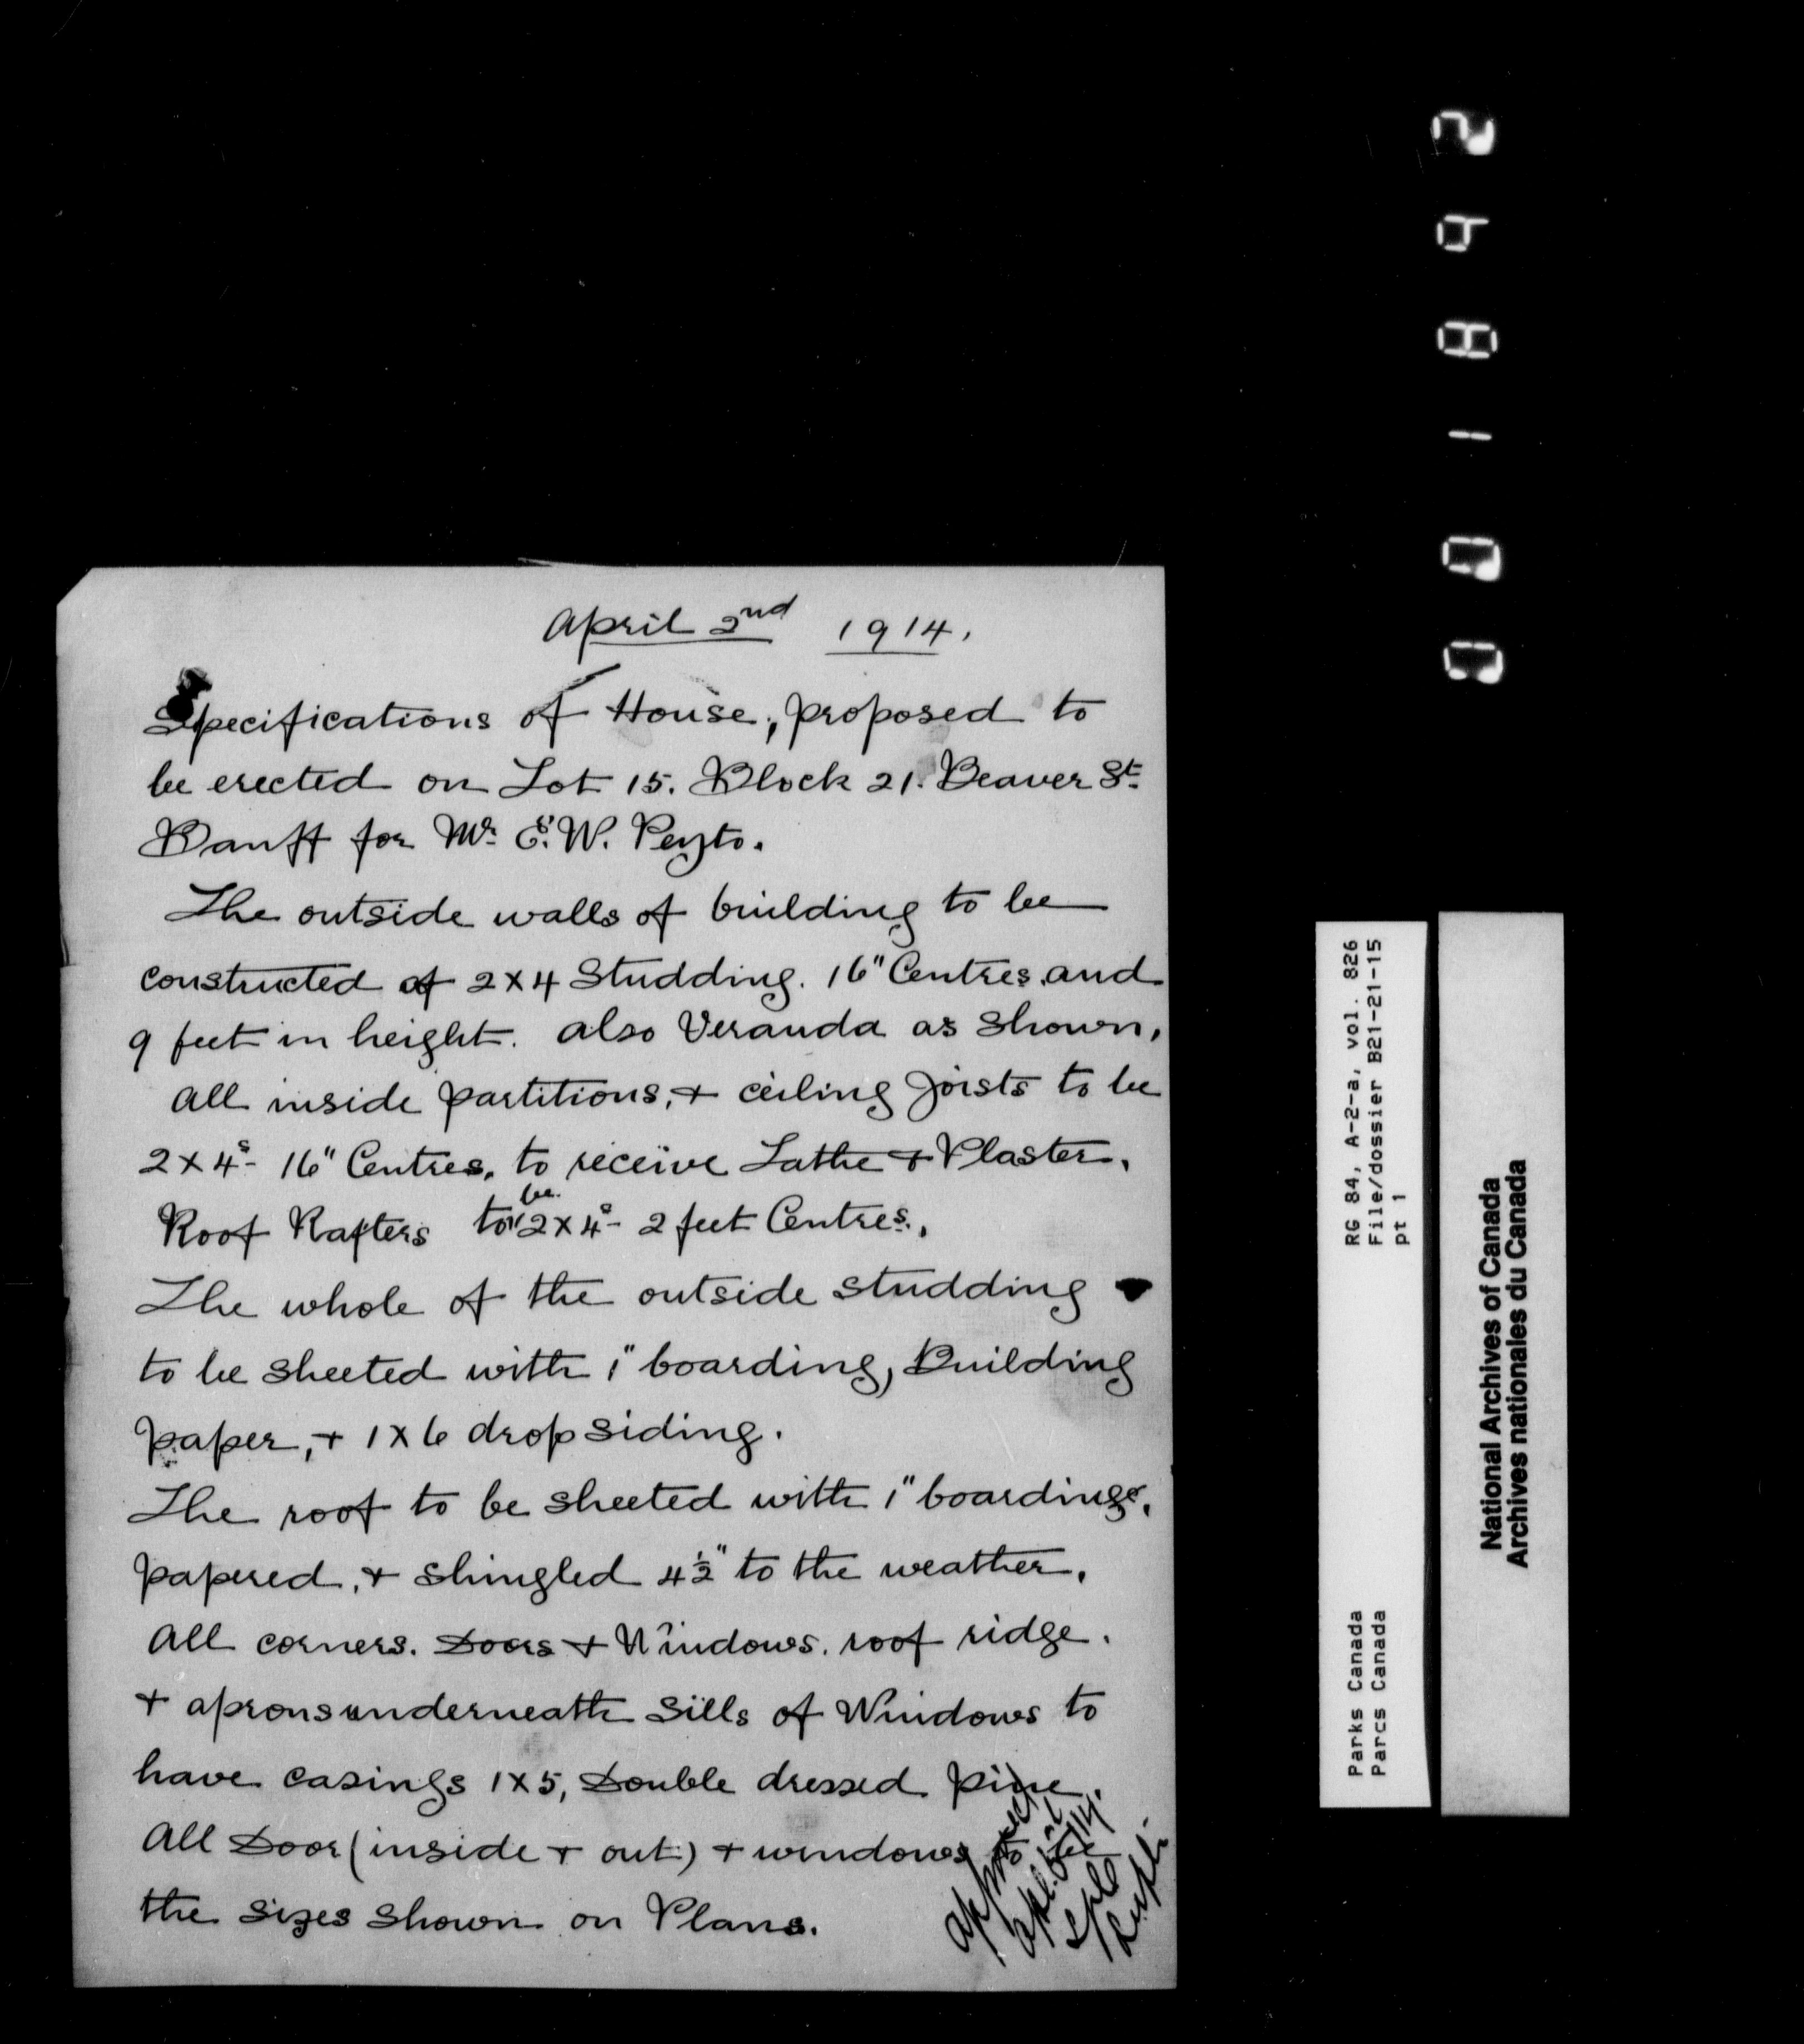 April 2nd 1914.
Specifications of House, proposed to
be erected on Lot 15. Block 21. Beaver St.
Banff for Mr. E. W. Peyto.
The outside walls of building to be
constructed of 2x4 Studding. 16" Centres and
9 feet in height. also Veranda as Shown,
all inside partitions, + ceiling joists to be
2x4s- 16" Centres. to receive Lathe + Plaster.
Roof Rafters to be 2x4s- 2 feet Centres.
The whole of the outside studding
to be sheeted with 1" boarding, Building
paper, + 1x6 drop siding.
The roof to be sheeted with 1" boardings.
papered, + shingled 4½" to the weather.
All corners. Doors + Windows. roof ridge.
+ aprons underneath Sills of Windows to
have casings 1x5, Double dressed pine.
All Door (inside + out) + windows to be
the sizes shown on Plans.
approved
Supt.
RG 84, A-2-a, vol. 826
File/dossier B21-21-15
pt 1
Parks Canada
Parcs Canada
National Archives of Canada
Archives nationales du Canada